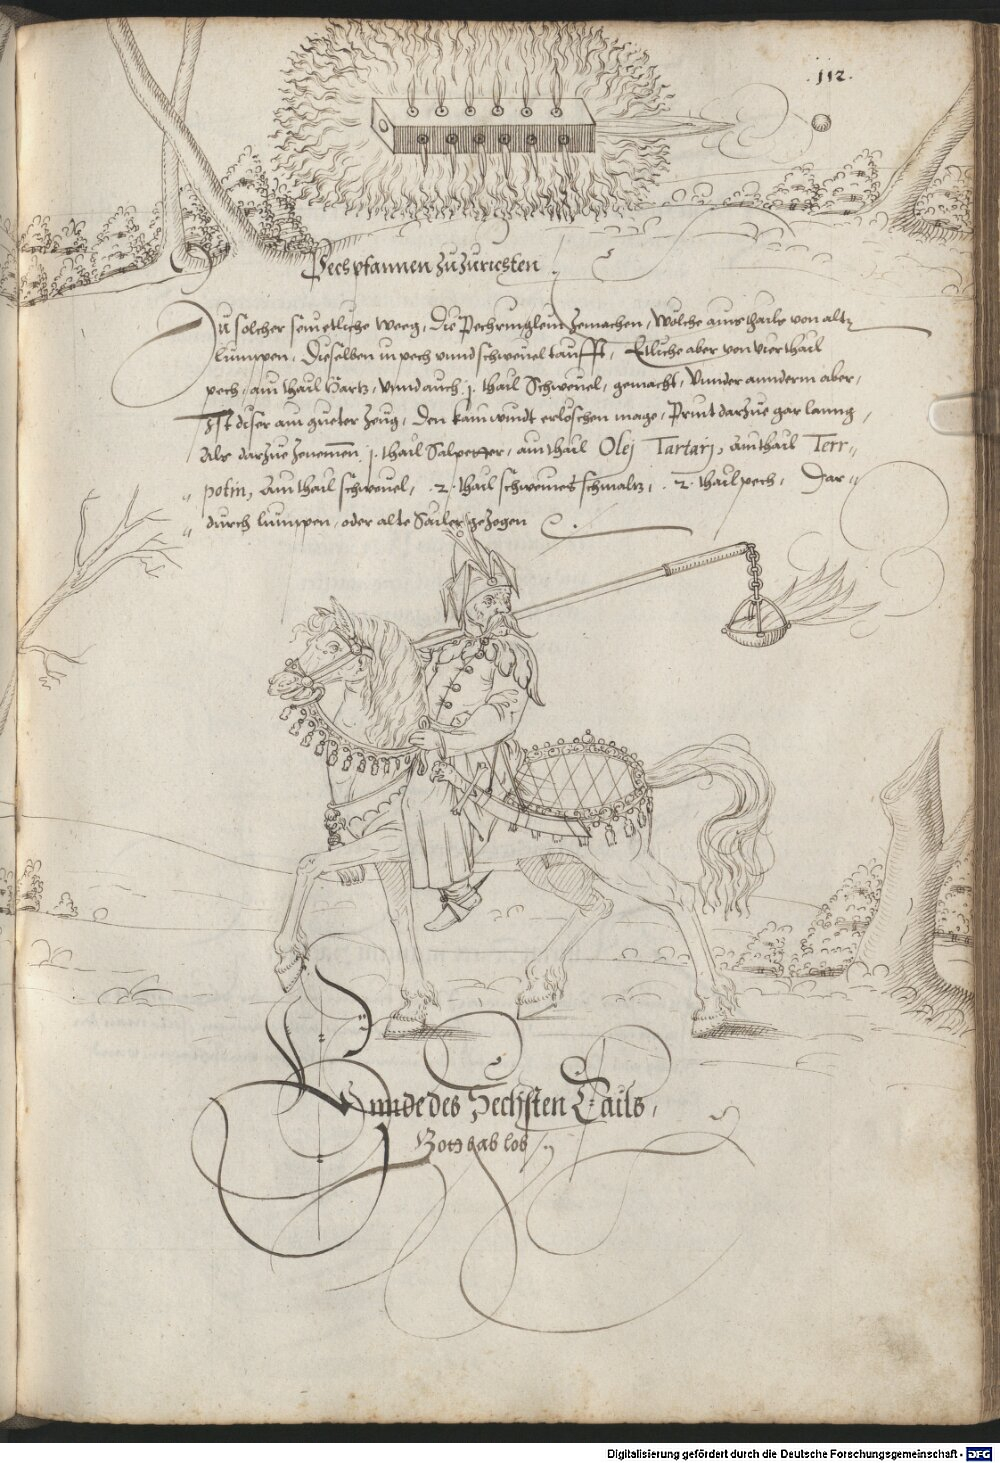 .112.
Pechpfannen zu Zurichten.
Zu solcher sein etliche weeg, die Pechringlein Zemachen, Wölche ains thails von altn
lumppen, Dieselben in pech vnnd schweuel taufft, Etliche aber von vier thail
pech, ain thail Hartz, vnnd auch .j. thail Schweuel, gemacht, Vnnder annderm aber,
Ist diser ain gueter Zeug, den kain windt erlöschen mage, Print darzue gar lanng,
Als darzue Zenemen .j. thail Salpetter, ain thail Olej Tartarj, ain thail Terr,,
,, potin, ain thail schweuel, .2. thail schweines schmaltz, .2. thail pech, Dar,,
,, durch lumppen, oder alte Sailer gezogen
Ennde des Sechsten Tails,
Gott hab lob
Digitalisierung gefördert durch die Deutsche Forschungsgemeinschaft - DFG